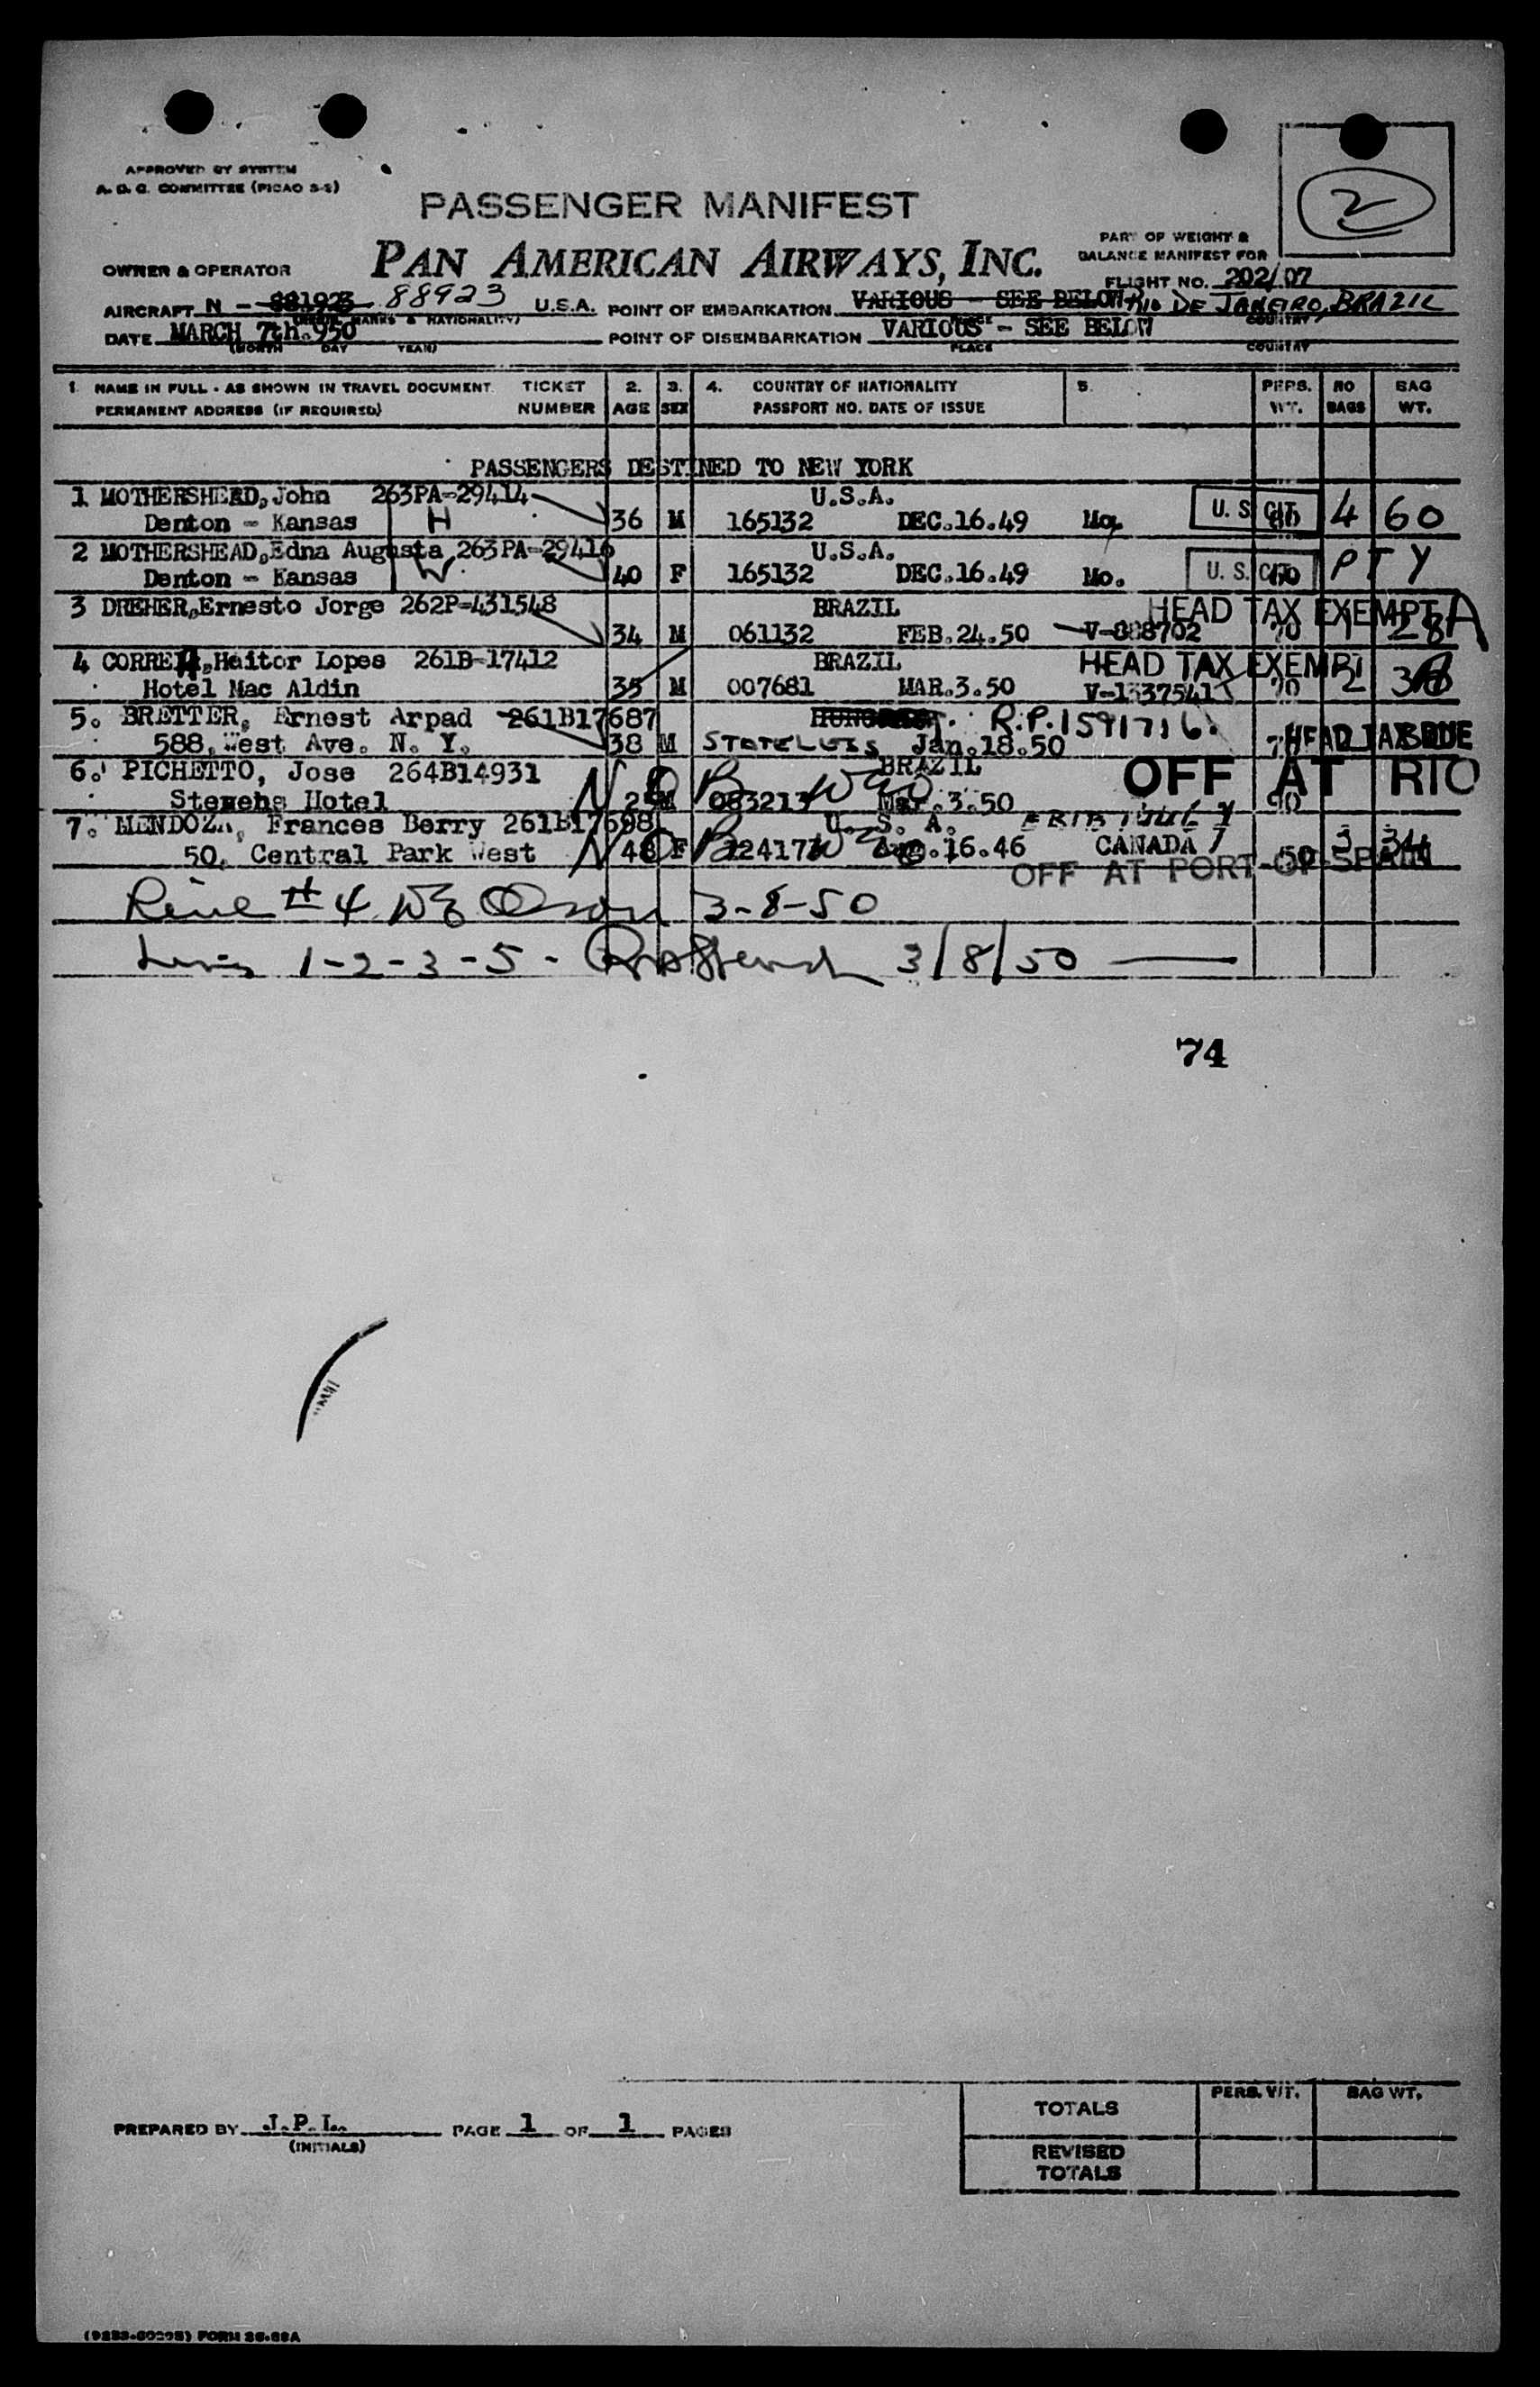 APPROVED BY SYSTEM
A. O. G. COMMITTEE (PICAO S-2)
2
PASSENGER MANIFEST
PAN AMERICAN AIRWAYS, INC.
PART OF WEIGHT &
BALANCE MANIFEST FOR
OWNER & OPERATOR
FLIGHT NO. 202/07
AIRCRAFT N - 88923 U.S.A. POINT OF EMBARKATION VARIOUS - SEE BELOW RIO DE JANEIRO, BRAZIL
MARKS & NATIONALITY) PLACE COUNTRY
DATE MARCH 7th.950 POINT OF DISEMBARKATION VARIOUS - SEE BELOW
(MONTH DAY YEAR) PLACE COUNTRY
1. NAME IN FULL - AS SHOWN IN TRAVEL DOCUMENT TICKET 2. 3. 4. COUNTRY OF NATIONALITY 5. PERS. NO BAG
PERMANENT ADDRESS (IF REQUIRED) NUMBER AGE SEX PASSPORT NO. DATE OF ISSUE WT. BAGS WT.
PASSENGERS DESTINED TO NEW YORK
1 MOTHERSHEAD, John 263PA-29414 U.S.A.
Denton - Kansas H 36 M 165132 DEC.16.49 Mo. U. S. CIT. 4 60
2 MOTHERSHEAD, Edna Augusta 263PA-29416 U.S.A.
Denton - Kansas W. 40 F 165132 DEC.16.49 Mo. U. S. CIT. PTY
3 DREHER, Ernesto Jorge 262P-431548 BRAZIL HEAD TAX EXEMPT A
34 M 061132 FEB.24.50 V-888702 70 1 28
4 CORREIA, Heitor Lopes 261B-17412 BRAZIL HEAD TAX EXEMPT
Hotel Mac Aldin 35 M 007681 MAR.3.50 V-1337541 70 2
5. BRETTER, Ernest Arpad 261B17687 R.P.1591716.
588, West Ave. N. Y. 38 M STATELESS Jan.18.50 HEAD TAX DUE
6. PICHETTO, Jose 264B14931 BRAZIL OFF AT RIO
Stevens Hotel M 083213 Mar.3.50 90
7. MENDOZA, Frances Berry 261B17698 U. S. A.
50, Central Park West 48 F .16.46 CANADA 50 3 34
OFF AT PORT-OF-SPAIN
Line #4 WE Olson 3-8-50
Lines 1-2-3-5- 3/8/50
74
TOTALS PERS. WT. BAG WT.
PREPARED BY J.P.L. PAGE 1 OF 1 PAGES
(INITIALS)
REVISED
TOTALS
FORM